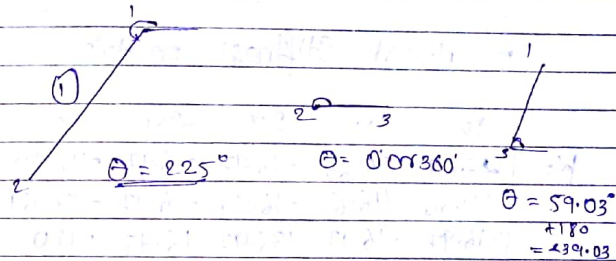 1
①
2
θ = 225°
2 3
θ = 0° or 360°
1
3
θ = 59.03°
+180
= 239.03